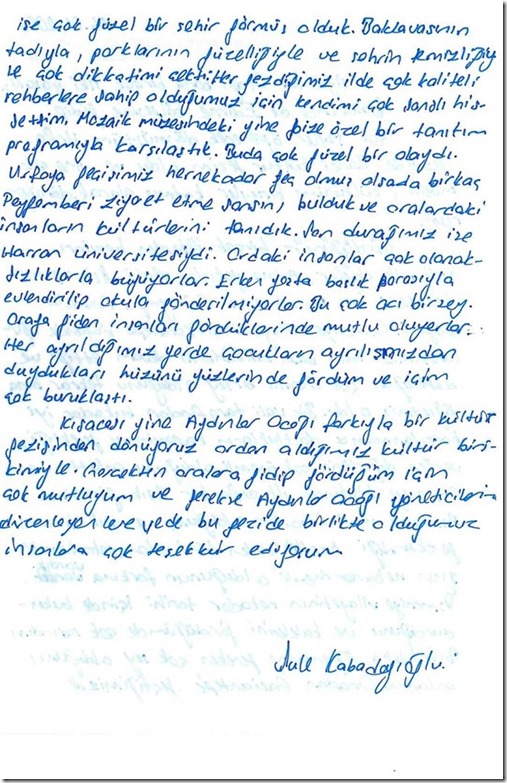 ise çok güzel bir şehir görmüş olduk. Baklavasının
tadıyla, parklarının güzelliğiyle ve şehrin temizliğiyle
ve çok dikkatimi çektiler gezdiğimiz ilde çok kaliteli
rehberlere sahip olduğumuz için kendimi çok şanslı his-
settim. Mozaik müzesindeki yine bize özel bir tanıtım
programıyla karşılaştık. Buda çok güzel bir olaydı.
Urfaya geçişimiz hernekadar geç olmuş olsada birkaç
Peygamberi ziyaret etme şansını bulduk ve oralardaki
insanların kültürlerini tanıdık. Son durağımız ise
Harran üniversitesiydi. Ordaki insanlar çok olanak-
sızlıklarla büyüyorlar. Erken yaşta başlık parasıyla
evlendirilip okula gönderilmiyorlar. Bu çok acı birşey.
Oraya giden insanları gördüklerinde mutlu oluyorlar.
Her ayrıldığımız yerde çocukların ayrılışımızdan
duydukları hüzünü yüzlerinde gördüm ve içim
çok buruklaştı.
Kısacası yine Aydınlar Ocağı farkıyla bir kültür
gezisinden dönüyoruz ordan aldığımız kültür biri-
kimiyle. Gerçekten oralara gidip gördüğüm için
çok mutluyum ve gerekse Aydınlar Ocağı yöneticilerine
düzenleyenlere vede bu gezide birlikte olduğumuz
insanlara çok teşekkür ediyorum
Kabadayıoğlu.